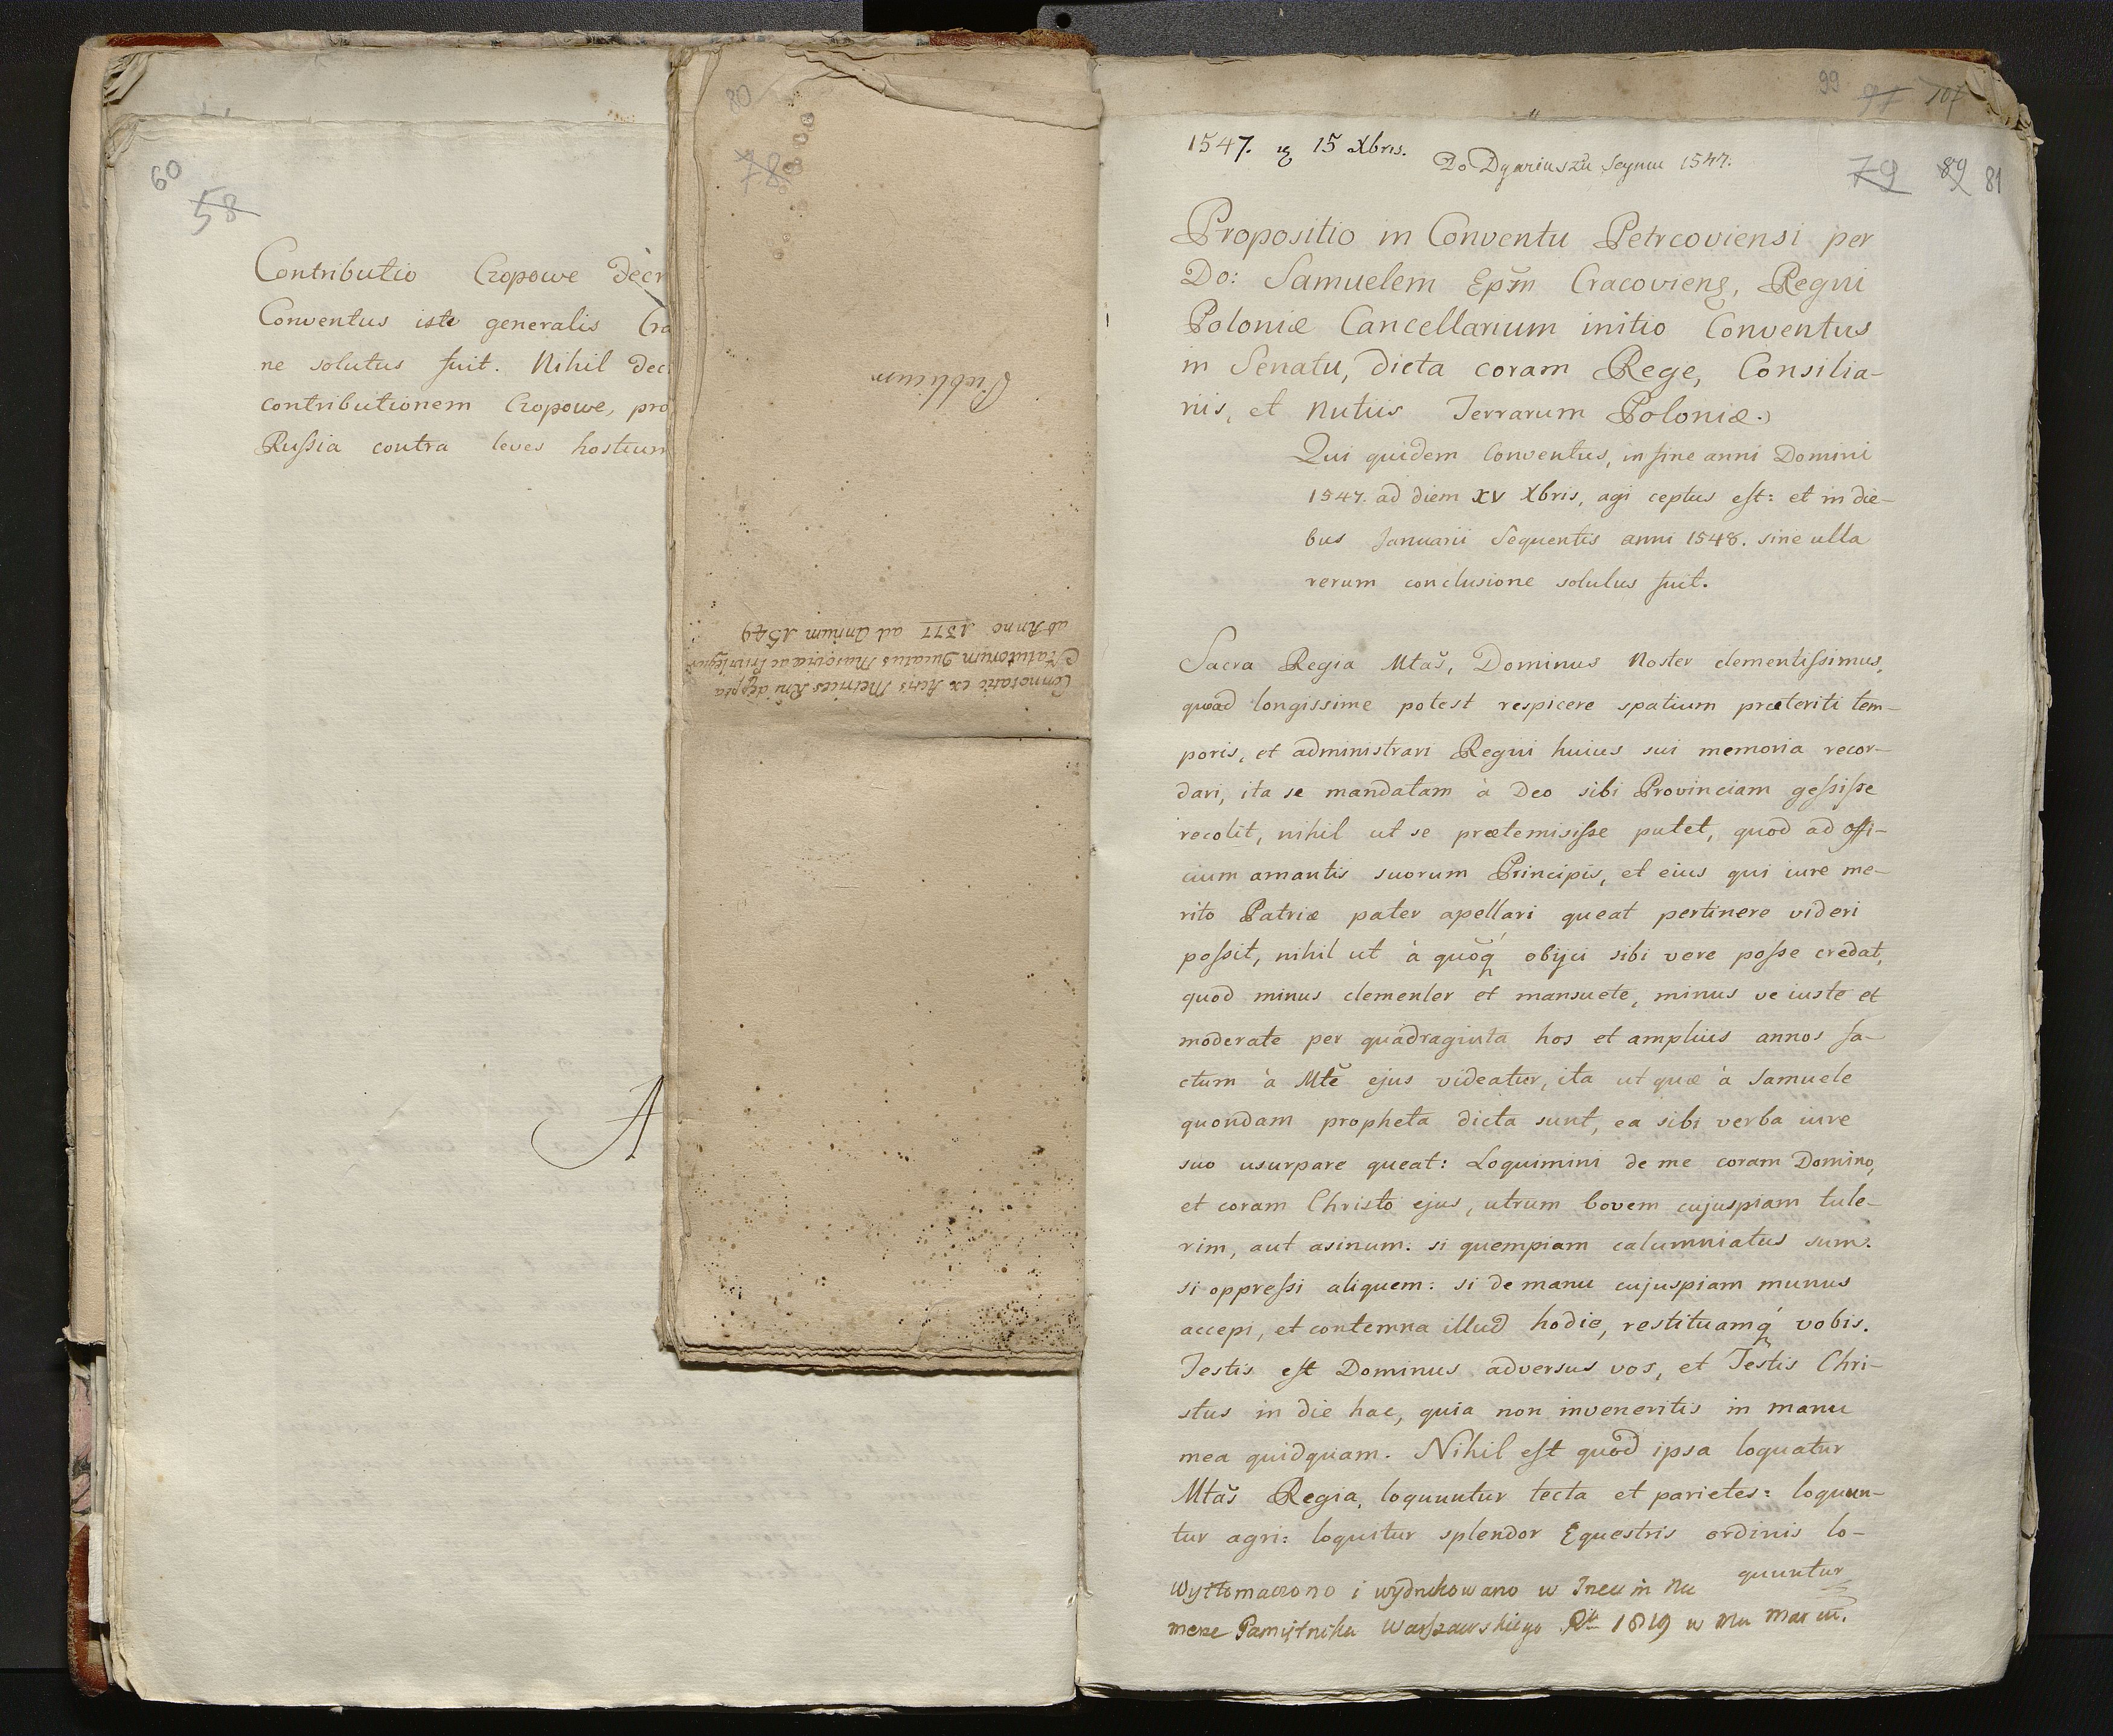 60
58
Contributio Czopowe decr
Conventus iste generalis Cra
ne solutus fuit. Nihil dec
contributionem Czopowe, pro
Rußia contra leves hostium
A
80
78
Publicum
Connotatio ex Actis Metrices Rni
Statutorum Ducatus Masoviæ ac Privilegior
ab Anno 1377 ad Annum 1549
99 97 101
1547. 15 Xbris.
Do Dyariuszu Seymu 1547.
79 89 81
Propositio in Conventu Petrcoviensi per
Do: Samuelem Epm̃ Cracovienẽ, Regni
Poloniæ Cancellarium initio Conventus
in Senatu, dicta coram Rege, Consilia-
riis, et Nutiis Terrarum Poloniæ.
Qui quidem Conventus, in fine anni Domini
1547. ad diem XV Xbris, agi ceptus est: et in die-
bus Januarii Sequentis anni 1548. sine ulla
rerum conclusione solutus fuit.
Sacra Regia Mtas̃, Dominus Noster clementißimus,
quoad longissime potest respicere spatium præteriti tem-
poris, et administrari Regni huius sui memoria recor-
dari, ita se mandatam à Deo sibi Provinciam geßiße
recolit, nihil ut se prætemisiße putet, quod ad offi-
cium amantis suorum Principis, et eius qui iure me-
rito Patriæ pater apellari queat pertinere videri
poßit, nihil ut à quoq̃ obijci sibi vere poße credat,
quod minus clementer et mansuete, minus ve iuste et
moderate per quadraginta hos et amplius annos fa-
ctum à Mtẽ ejus videatur, ita ut quæ à Samuele
quondam propheta dicta sunt, ea sibi verba iure
suo usurpare queat: Loquimini de me coram Domino,
et coram Christo ejus, utrum bovem cujuspiam tule-
rim, aut asinum: si quempiam calumniatus sum.
si oppreßi aliquem: si de manu cujuspiam munus
accepi, et contemna illud hodie, restituamq́ vobis.
Testis est Dominus adversus vos, et Testis Chri-
stus in die hac, quia non inveneritis in manu
mea quidquam. Nihil est quod ipsa loquatur
Mtas̃ Regia, loquuntur tecta et parietes: loquun-
tur agri: loquitur splendor Equestris ordinis lo-
quuntur
Wytłomaczono i wydrukowano w Nu
merze Pamiętnika Warszawskiego Rku 1819 w Mu